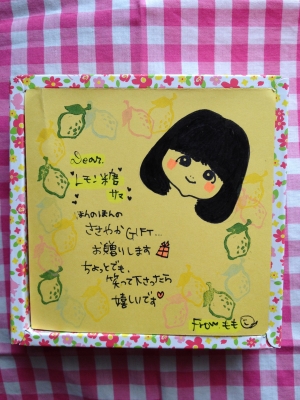 Dear.
レモン糖
サマ
ほんのほんの
ささやかGIFT...
お贈りします
ちょっとでも、
笑って下さったら
嬉しいです
From もも